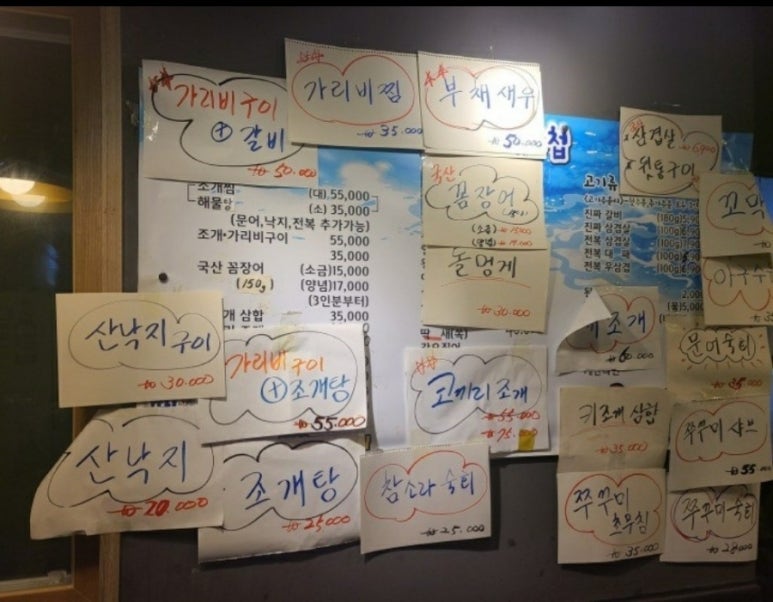 가리비구이
⊕ 갈비
₩ 50.000
가리비찜
₩ 35.000
부채새우
₩ 50.000
첩
삼겹살
₩ 6,900
왓통구이
조개찜
해물탕
(대) 55,000
(소) 35,000
(문어,낙지,전복 추가가능)
조개·가리비구이 55,000
35,000
국산 꼼장어 (소금)15,000
(150g) (양념)17,000
(3인분부터)
개 삼합 35,000
국산
꼼장어
(소금) ₩ 15.000
(양념) ₩ 17.000
돌멍게
₩ 30.000
고기류
진짜 갈비 (180g)
진짜 삼겹살 (100g)
전복 삼겹살 (100g)
전복 대 패 (100g)
전복 우삼겹
꼬막
산낙지구이
₩ 30.000
가리비구이
⊕조개탕
₩ 55.000
코끼리조개
₩ 55.000
₩ 75.000
조개
₩ 60.000
문어숙회
₩ 35.000
키조개 삼합
₩ 35.000
쭈꾸미 샤브
₩ 55.000
산낙지
₩ 20.000
조개탕
₩ 25.000
참소라 숙회
₩ 25.000
쭈꾸미
초무침
₩ 35.000
쭈꾸미숙회
₩ 28.000